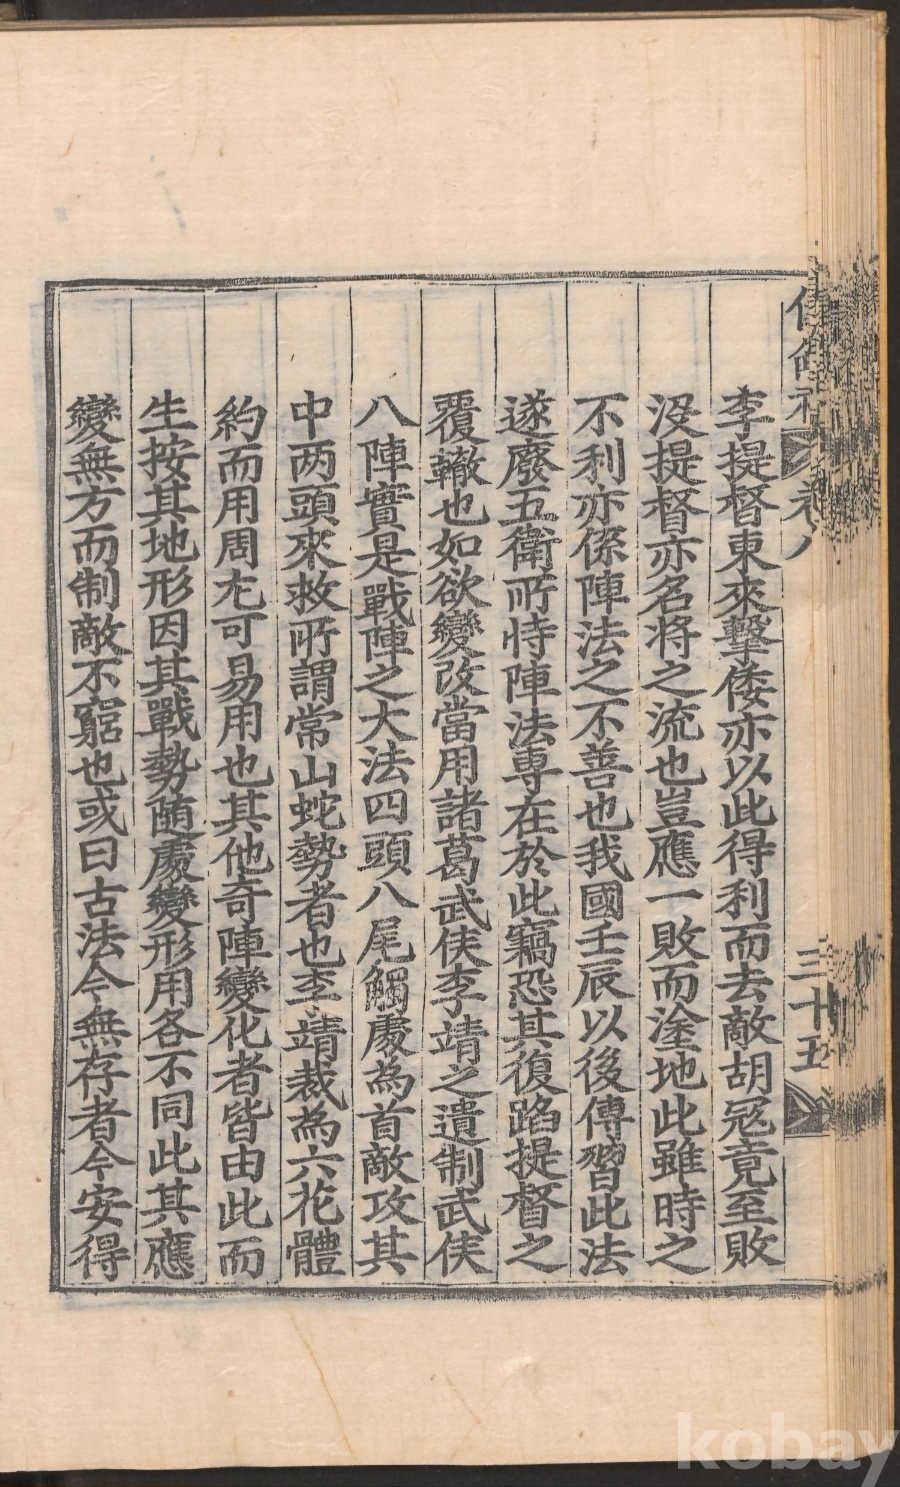 卷八
三十五
李提督東來擊倭亦以此得利而去敵胡冦竟至敗
沒提督亦名将之流也豈應一敗而塗地此雖時之
不利亦係陣法之不善也我國壬辰以後傳習此法
遂廢五衛所恃陣法專在於此竊恐其復蹈提督之
覆轍也如欲變改當用諸葛武侯李靖之遺制武侯
八陣實是戰陣之大法四頭八尾觸處為首敵攻其
中两頭來救所謂常山蛇勢者也李靖裁為六花體
約而用周尤可易用也其他奇陣變化者皆由此而
生按其地形因其戰勢随處變形用各不同此其應
變無方而制敵不窮也或曰古法今無存者今安得
kobay